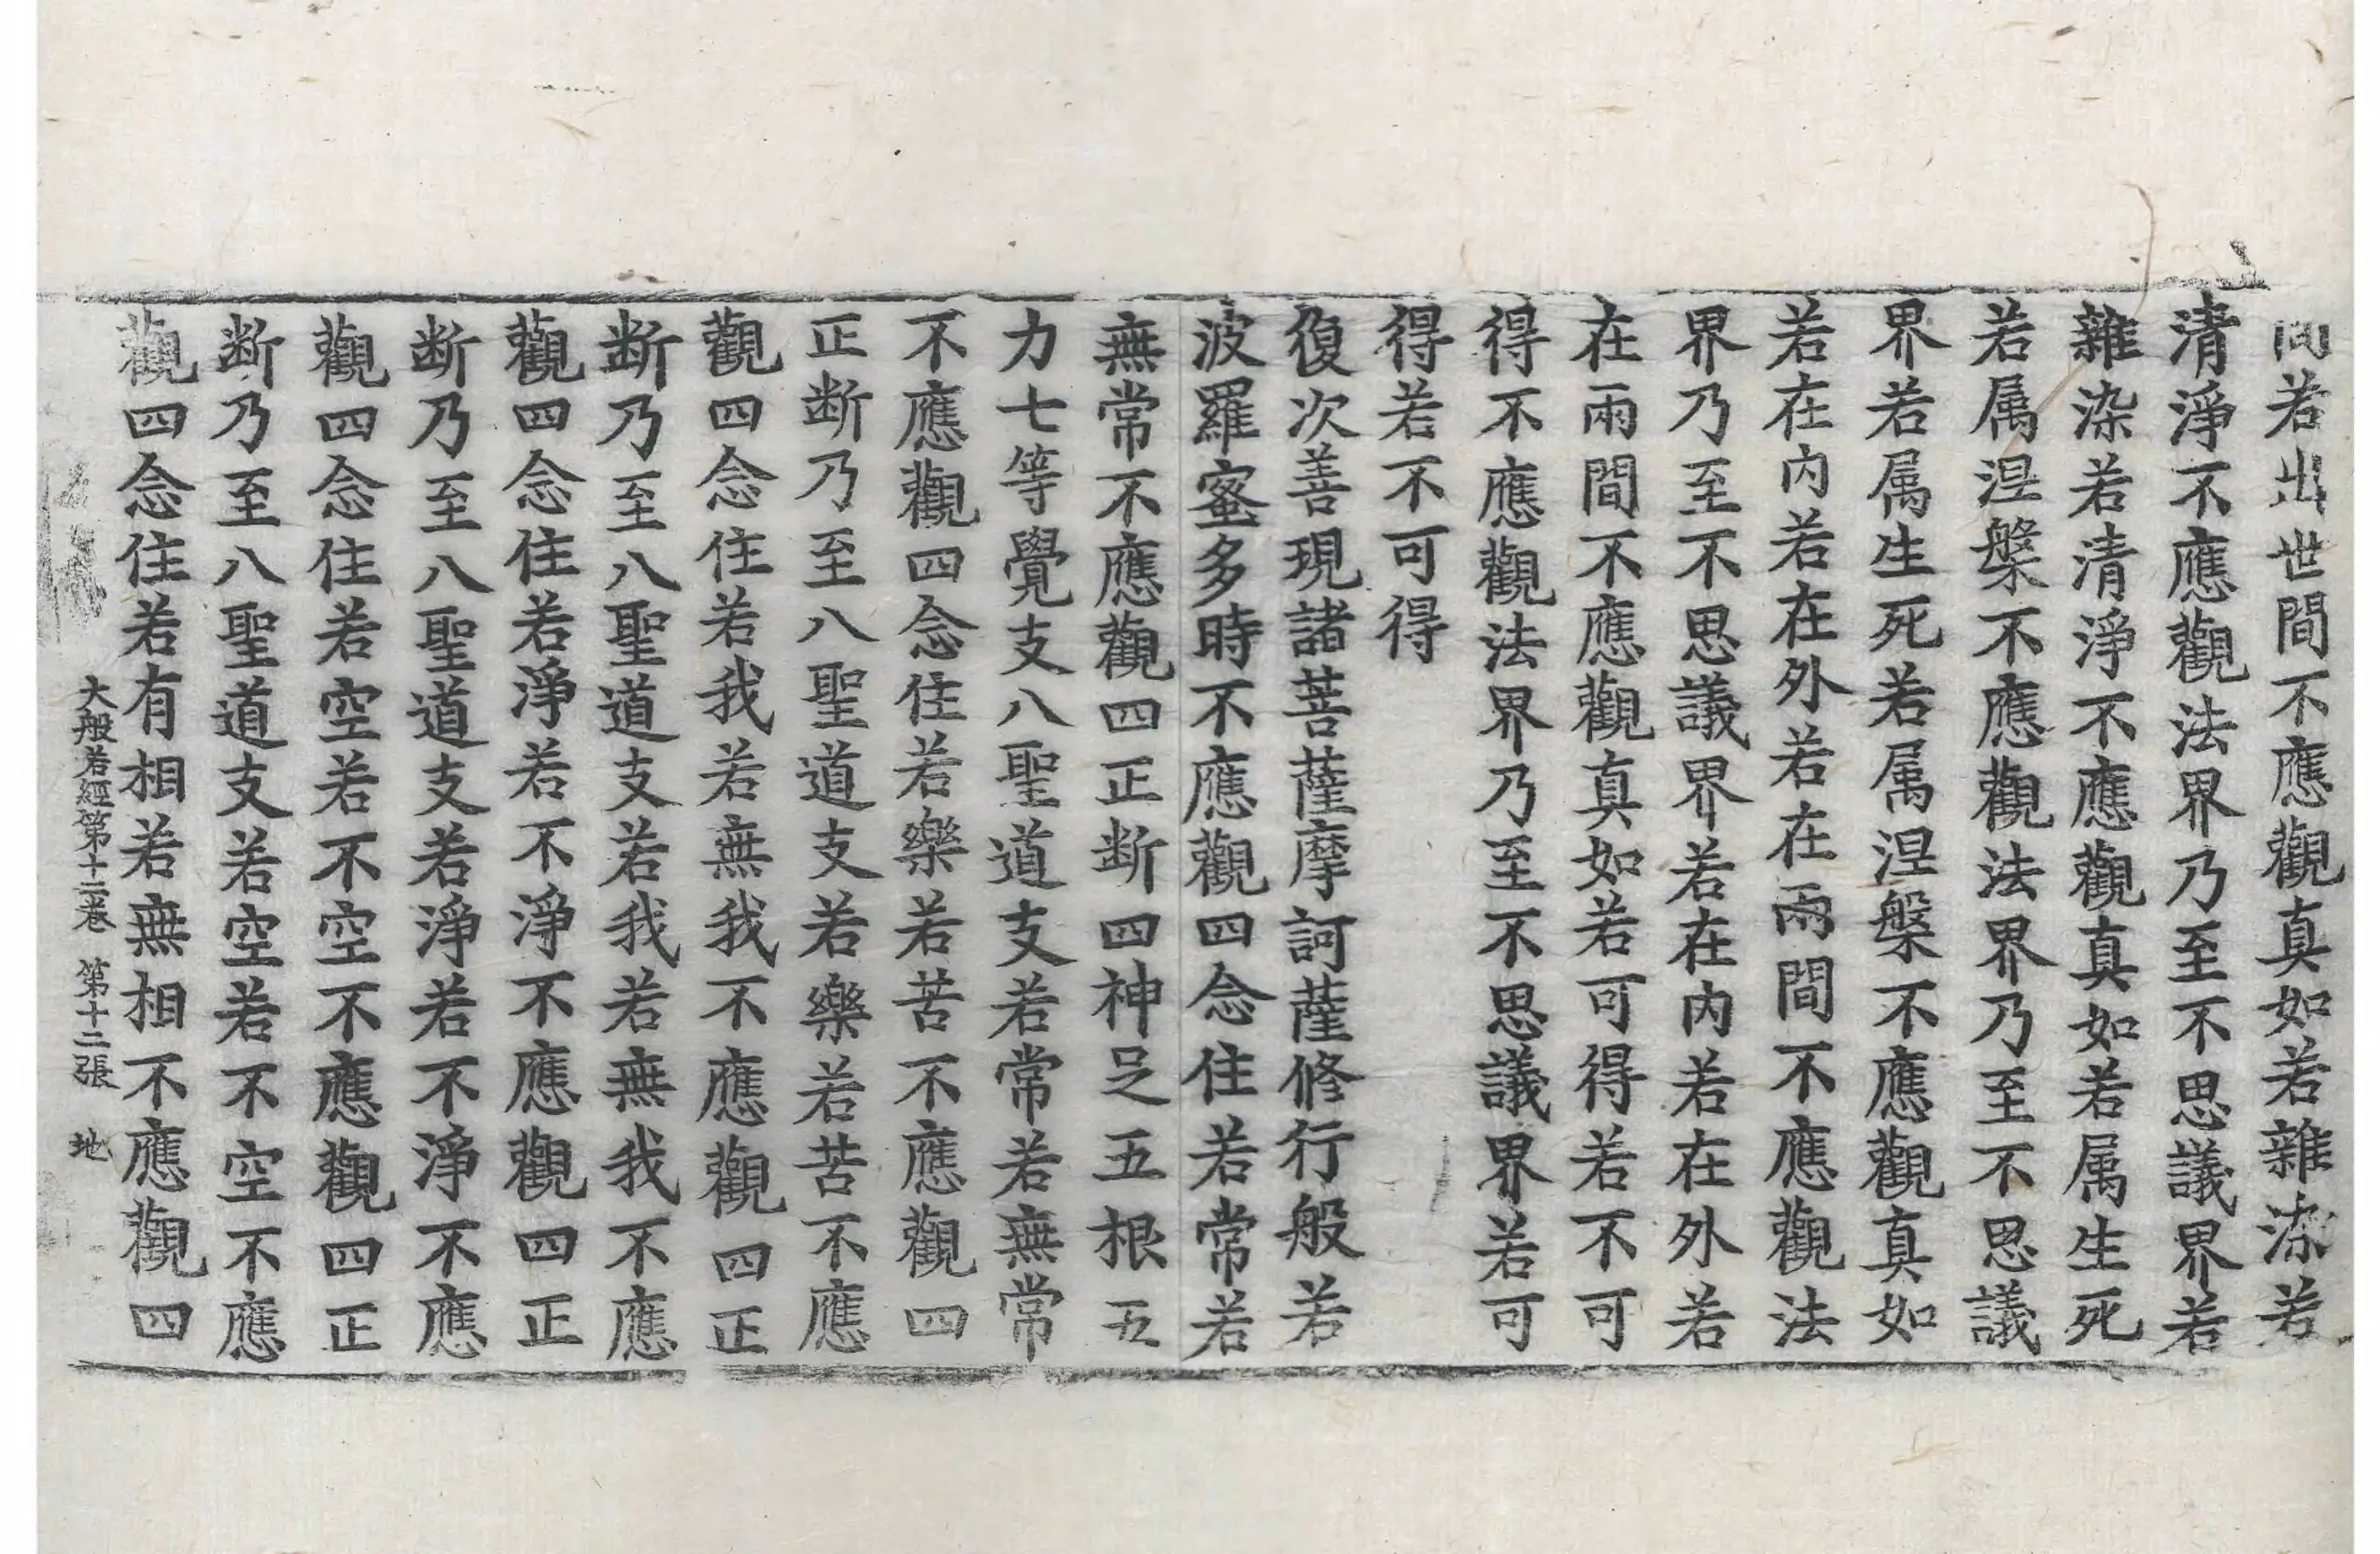 間若出世間不應觀真如若雜染若
清淨不應觀法界乃至不思議界若
雜染若清淨不應觀真如若属生死
若属涅槃不應觀法界乃至不思議
界若属生死若属涅槃不應觀真如
若在內若在外若在兩間不應觀法
界乃至不思議界若在內若在外若
在兩間不應觀真如若可得若不可
得不應觀法界乃至不思議界若可
得若不可得
復次善現諸菩薩摩訶薩修行般若
波羅蜜多時不應觀四念住若常若
無常不應觀四正断四神足五根五
力七等覺支八聖道支若常若無常
不應觀四念住若樂若苦不應觀四
正断乃至八聖道支若樂若苦不應
觀四念住若我若無我不應觀四正
断乃至八聖道支若我若無我不應
觀四念住若淨若不淨不應觀四正
断乃至八聖道支若淨若不淨不應
觀四念住若空若不空不應觀四正
断乃至八聖道支若空若不空不應
觀四念住若有相若無相不應觀四
大般若經第十二卷 第十二張 地